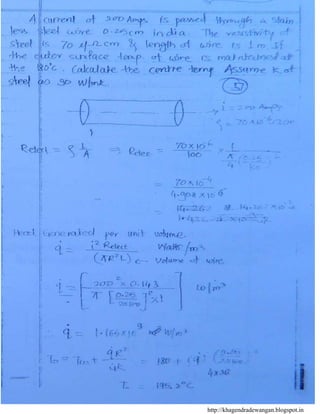 A current of 200 Amps is passed through a stain
less steel wire 0.25cm in dia. The resistivity of
steel is 70 μΩcm & length of wire is 1 m. If
the outer surface temp. of wire is maintained at
the 180°c. Calculate the centre temp Assume K of
steel as 30 W/mk
i = 200 Amps
Relect = ρ l/A ⇒ Relec = 70×10⁻⁶/100 × 1/
= 70×10⁻⁴
4.908×10⁻⁶
Heat Generated per unit volume.
q̇ = i² Relect/(πR²L) ← Volume of wire Watts/m³
q̇ = [200² × 0.143 / π [0.25/200]² × 1] W/m³
∴ q̇ = 1.165×10⁹ W/m³
To = Tw + q̇R²/4K = 180 + (q̇)
4×30
To = 195.2°C
http://khagendradewangan.blogspot.in